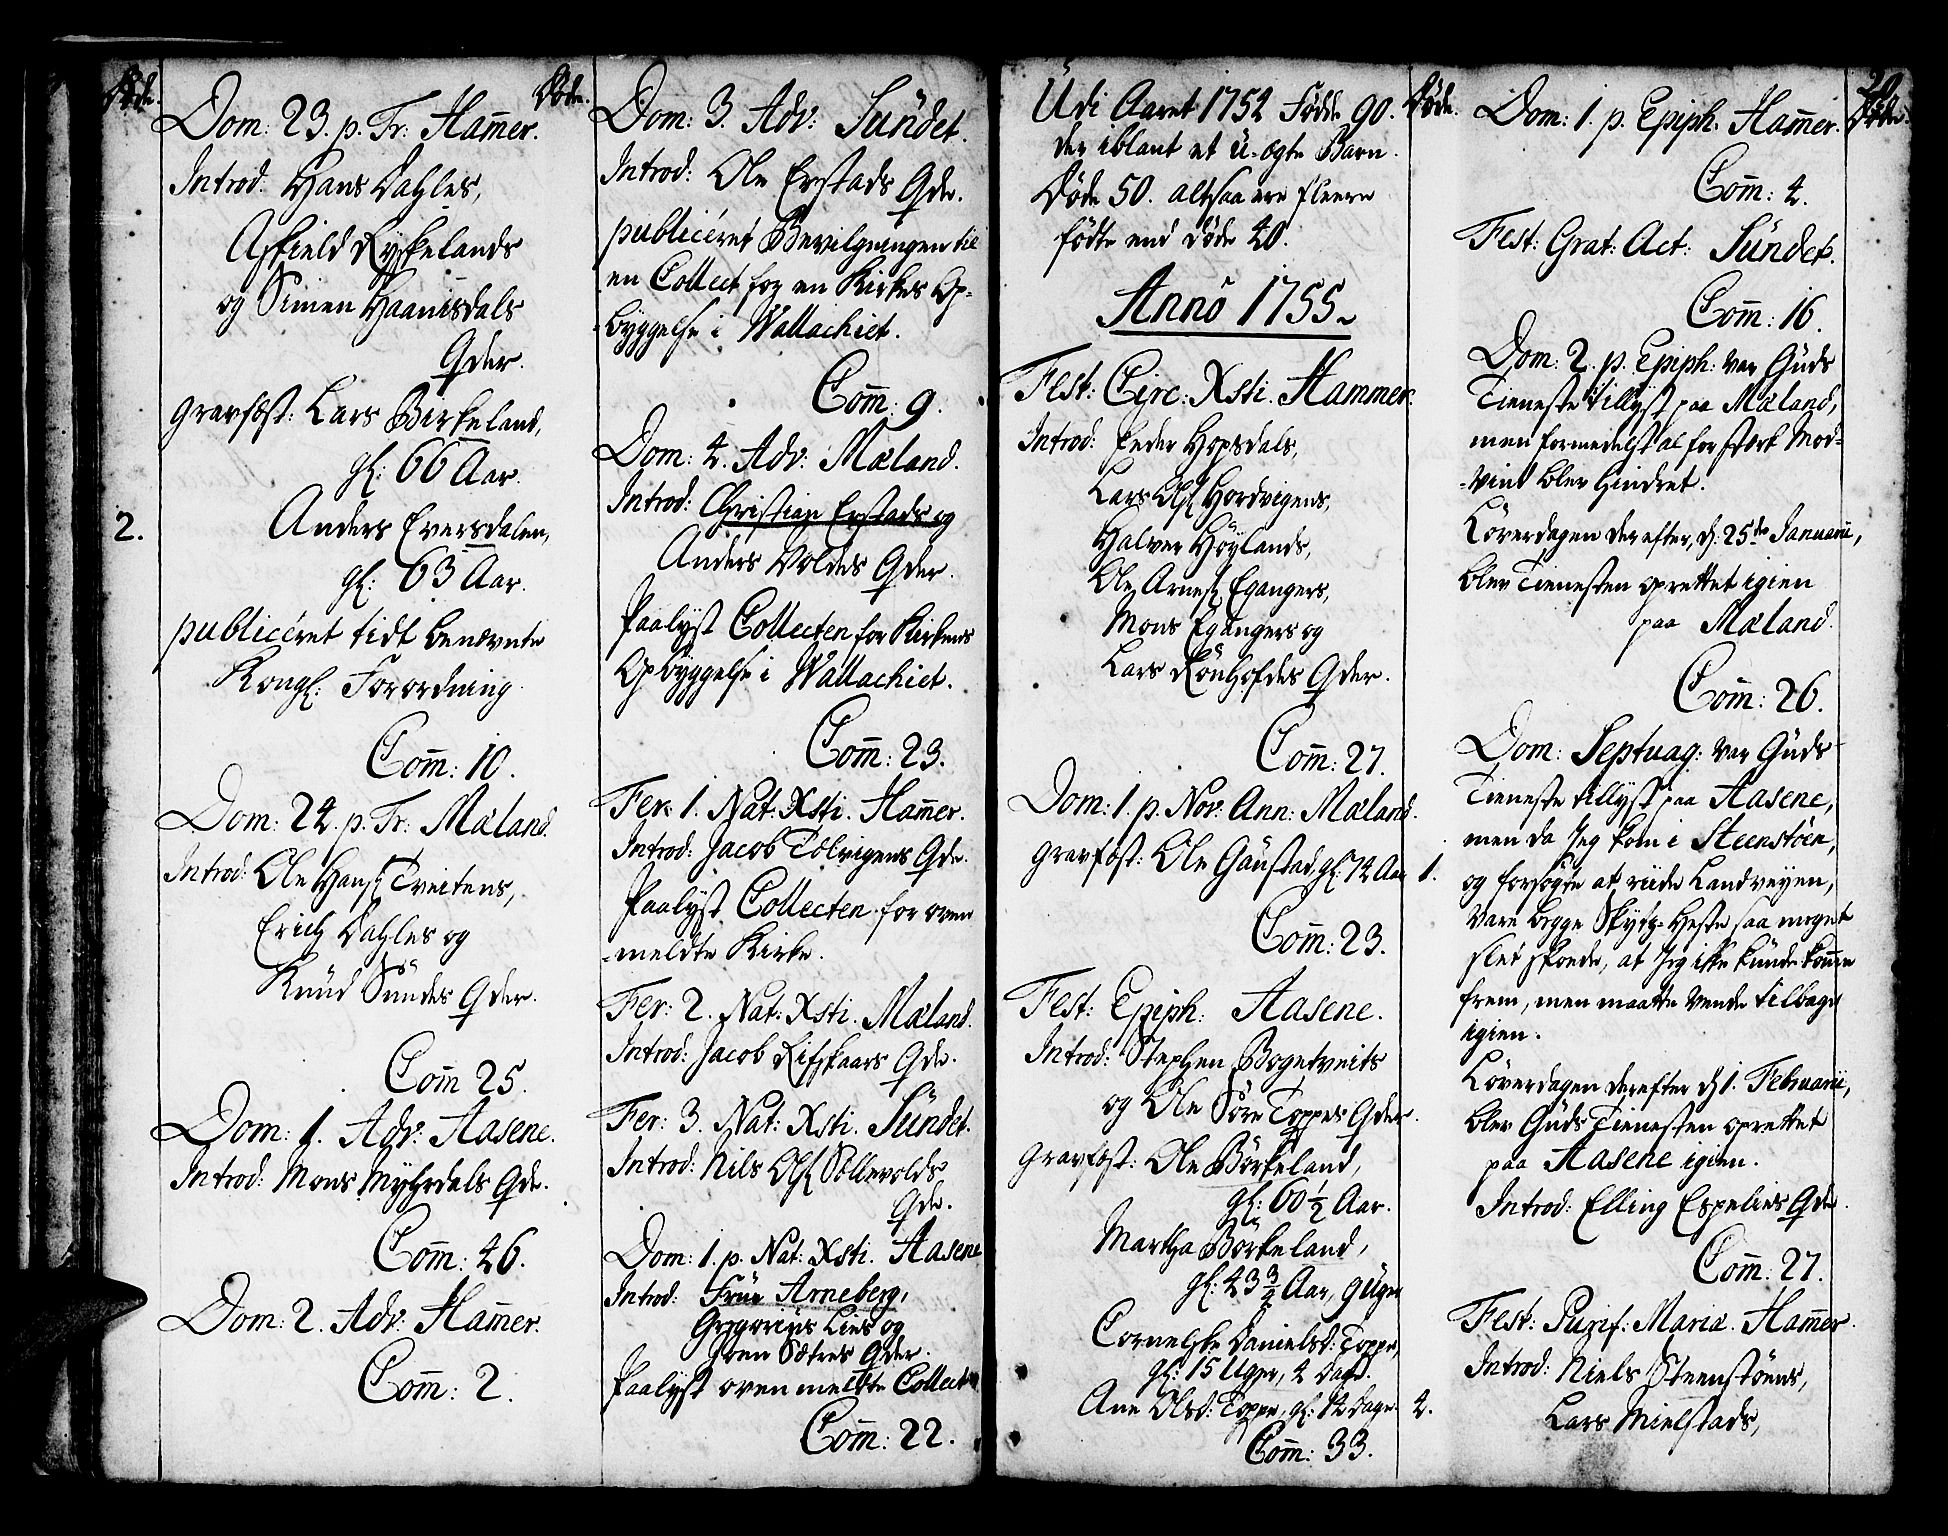 Døde.
Dom: 23. p. Tr: Ham̄er.
Introd: Hans Dahles,
Askield Ryskelands
og Simen Haanisdals
Qder.
gravfæst: Lars Birkeland,
gl: 66 Aar.
Anders Eversdalen,
gl: 63 Aar.
2.
publiceret tidt benævnte
Kongl: Forordning
Com̄: 10.
Dom: 24. p. Tr: Mæland.
Introd: Ole Hans: Tveitens,
Erich Dahles og
Knud Sundes Qder.
Com̄ 25.
Dom: 1. Adv: Aasene.
Introd: Mons Myhrdals Qde.
Com̄: 46.
Dom: 2. Adv: Ham̄er.
Com̄: 2.
Døde.
Dom: 3. Adv: Sündet.
Introd: Ole Erstads Qde.
publiceret Bevilgningen til
en Collect for en Kirkes Op-
-byggelse i Wallachiet.
Com̄: 9.
Dom: 4. Adv: Mæland.
Introd: Christian Erstads og
Anders Voldes Qder.
Paalyst Collecten for Kirkens
Opbyggelse i Wallachiet.
Com̄: 23.
Fer: 1. Nat: Xsti. Ham̄er.
Introd: Jacob Tølvigens Qde.
Paalyst Collecten for oven
-meldte Kirke.
Fer: 2. Nat: Xsti. Mæland.
Introd: Jacob Rifskaars Qde.
Fer: 3. Nat: Xsti. Sündet.
Introd: Nils Ols: Søllevolds
Qde.
Dom: 1. p. Nat: Xsti. Aasene
Introd: Früe Arneberg,
Gregorius Lies og
Iven Sætres Qder.
Paalyst ovenmeldte Collect
Com̄: 22.
Udi Aaret 1754 Fødde 90.
der iblant et ü-ægte Barn.
Døde 50. altsaa ere fleere
fødte end døde 40.
Anno 1755.
Døde.
Fest: Circ: Xsti. Hammer.
Introd: Peder Hopsdals,
Lars Ols: Hordvigens,
Halver Høylands,
Ole Arnes: Egangers,
Mons Egangers og
Lars Rønhofdes Qder.
Com̄: 27.
Dom: 1. p. Nov: Ann: Mæland.
gravfæst: Ole Gaustad, gl: 74 Aar 1.
Com̄: 23.
Fest: Epiph: Aasene.
Introd: Stephen Bogetveits
og Ole Søre Toppes Qder.
gravfæst: Ole Børkeland,
gl: 60½ Aar.
Martha Børkeland,
gl: 43¾ Aar,
Cornelske Danielsd: Toppe,
gl: 15 Uger, 4 Dage.
Ane Olsd: Toppe, gl: 14 Dage. 4.
Com̄: 33.
20.
Døde.
Dom: 1. p. Epiph. Ham̄er.
Com̄: 4.
Fest: Grat: Act: Sündet.
Com̄: 16.
Dom: 2. p. Epiph: var Güds
Tieneste tillyst paa Mæland,
men formedelst al for stærk Mod-
-vind blev hindret.
Løverdagen derefter, d. 25de Januarii,
blev Tienesten oprettet igien
paa Mæland.
Com̄: 26.
Dom: Septuag: var Güds-
Tieneste tillyst paa Aasene,
men da Jeg kom i Steenstøen,
og forsøgte at riide Landveyen,
vare begge Skyds-Heste saa meget
slet skoede, at Jeg ikke kunde kom̄e
frem, men maatte vende tilbage
igien.
Løverdagen derefter d. 1. Februarii,
blev Güds Tienesten oprettet
paa Aasene igien.
Introd: Elling Espelies Qde.
Com̄: 27.
Fest: Purif: Mariæ. Ham̄er.
Introd: Niels Steenstøens,
Lars Mielstads,